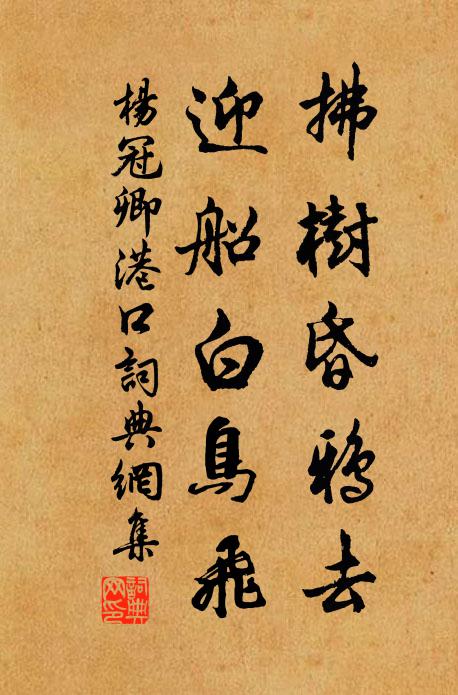 拂樹昏鴉去
迎船白鳥飛
楊冠卿港口詞典網集
詞典網印